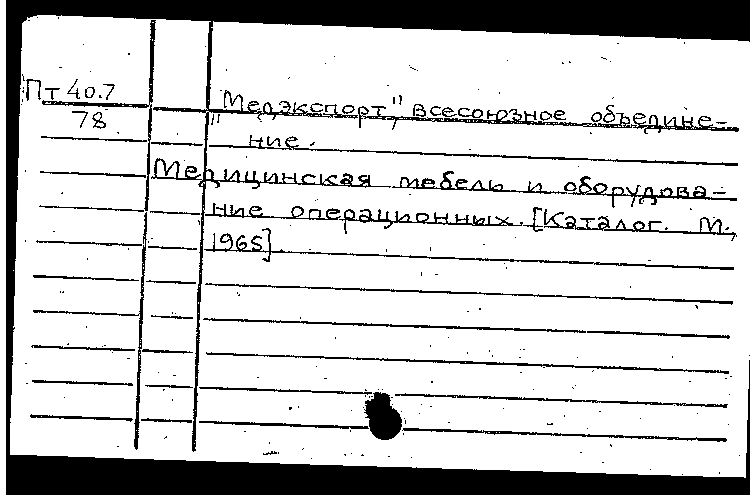 Пт 40.7
78
"Медэкспорт", всесоюзное объедине-
ние.
Медицинская мебель и оборудова-
ние операционных. [Каталог. М.,
1965].